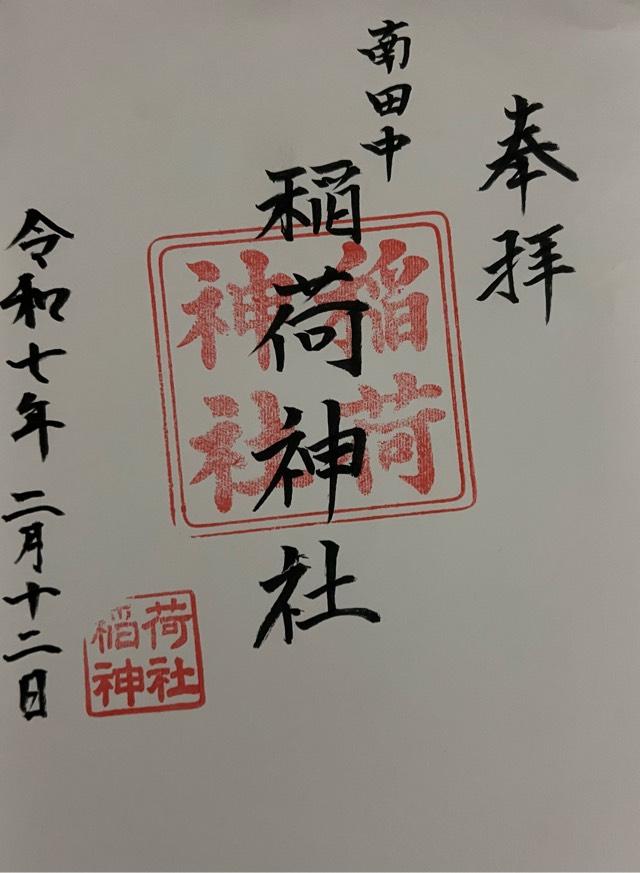 奉拝
南田中
稲荷神社
稲荷
神社
令和七年二月十二日
稲荷
神社